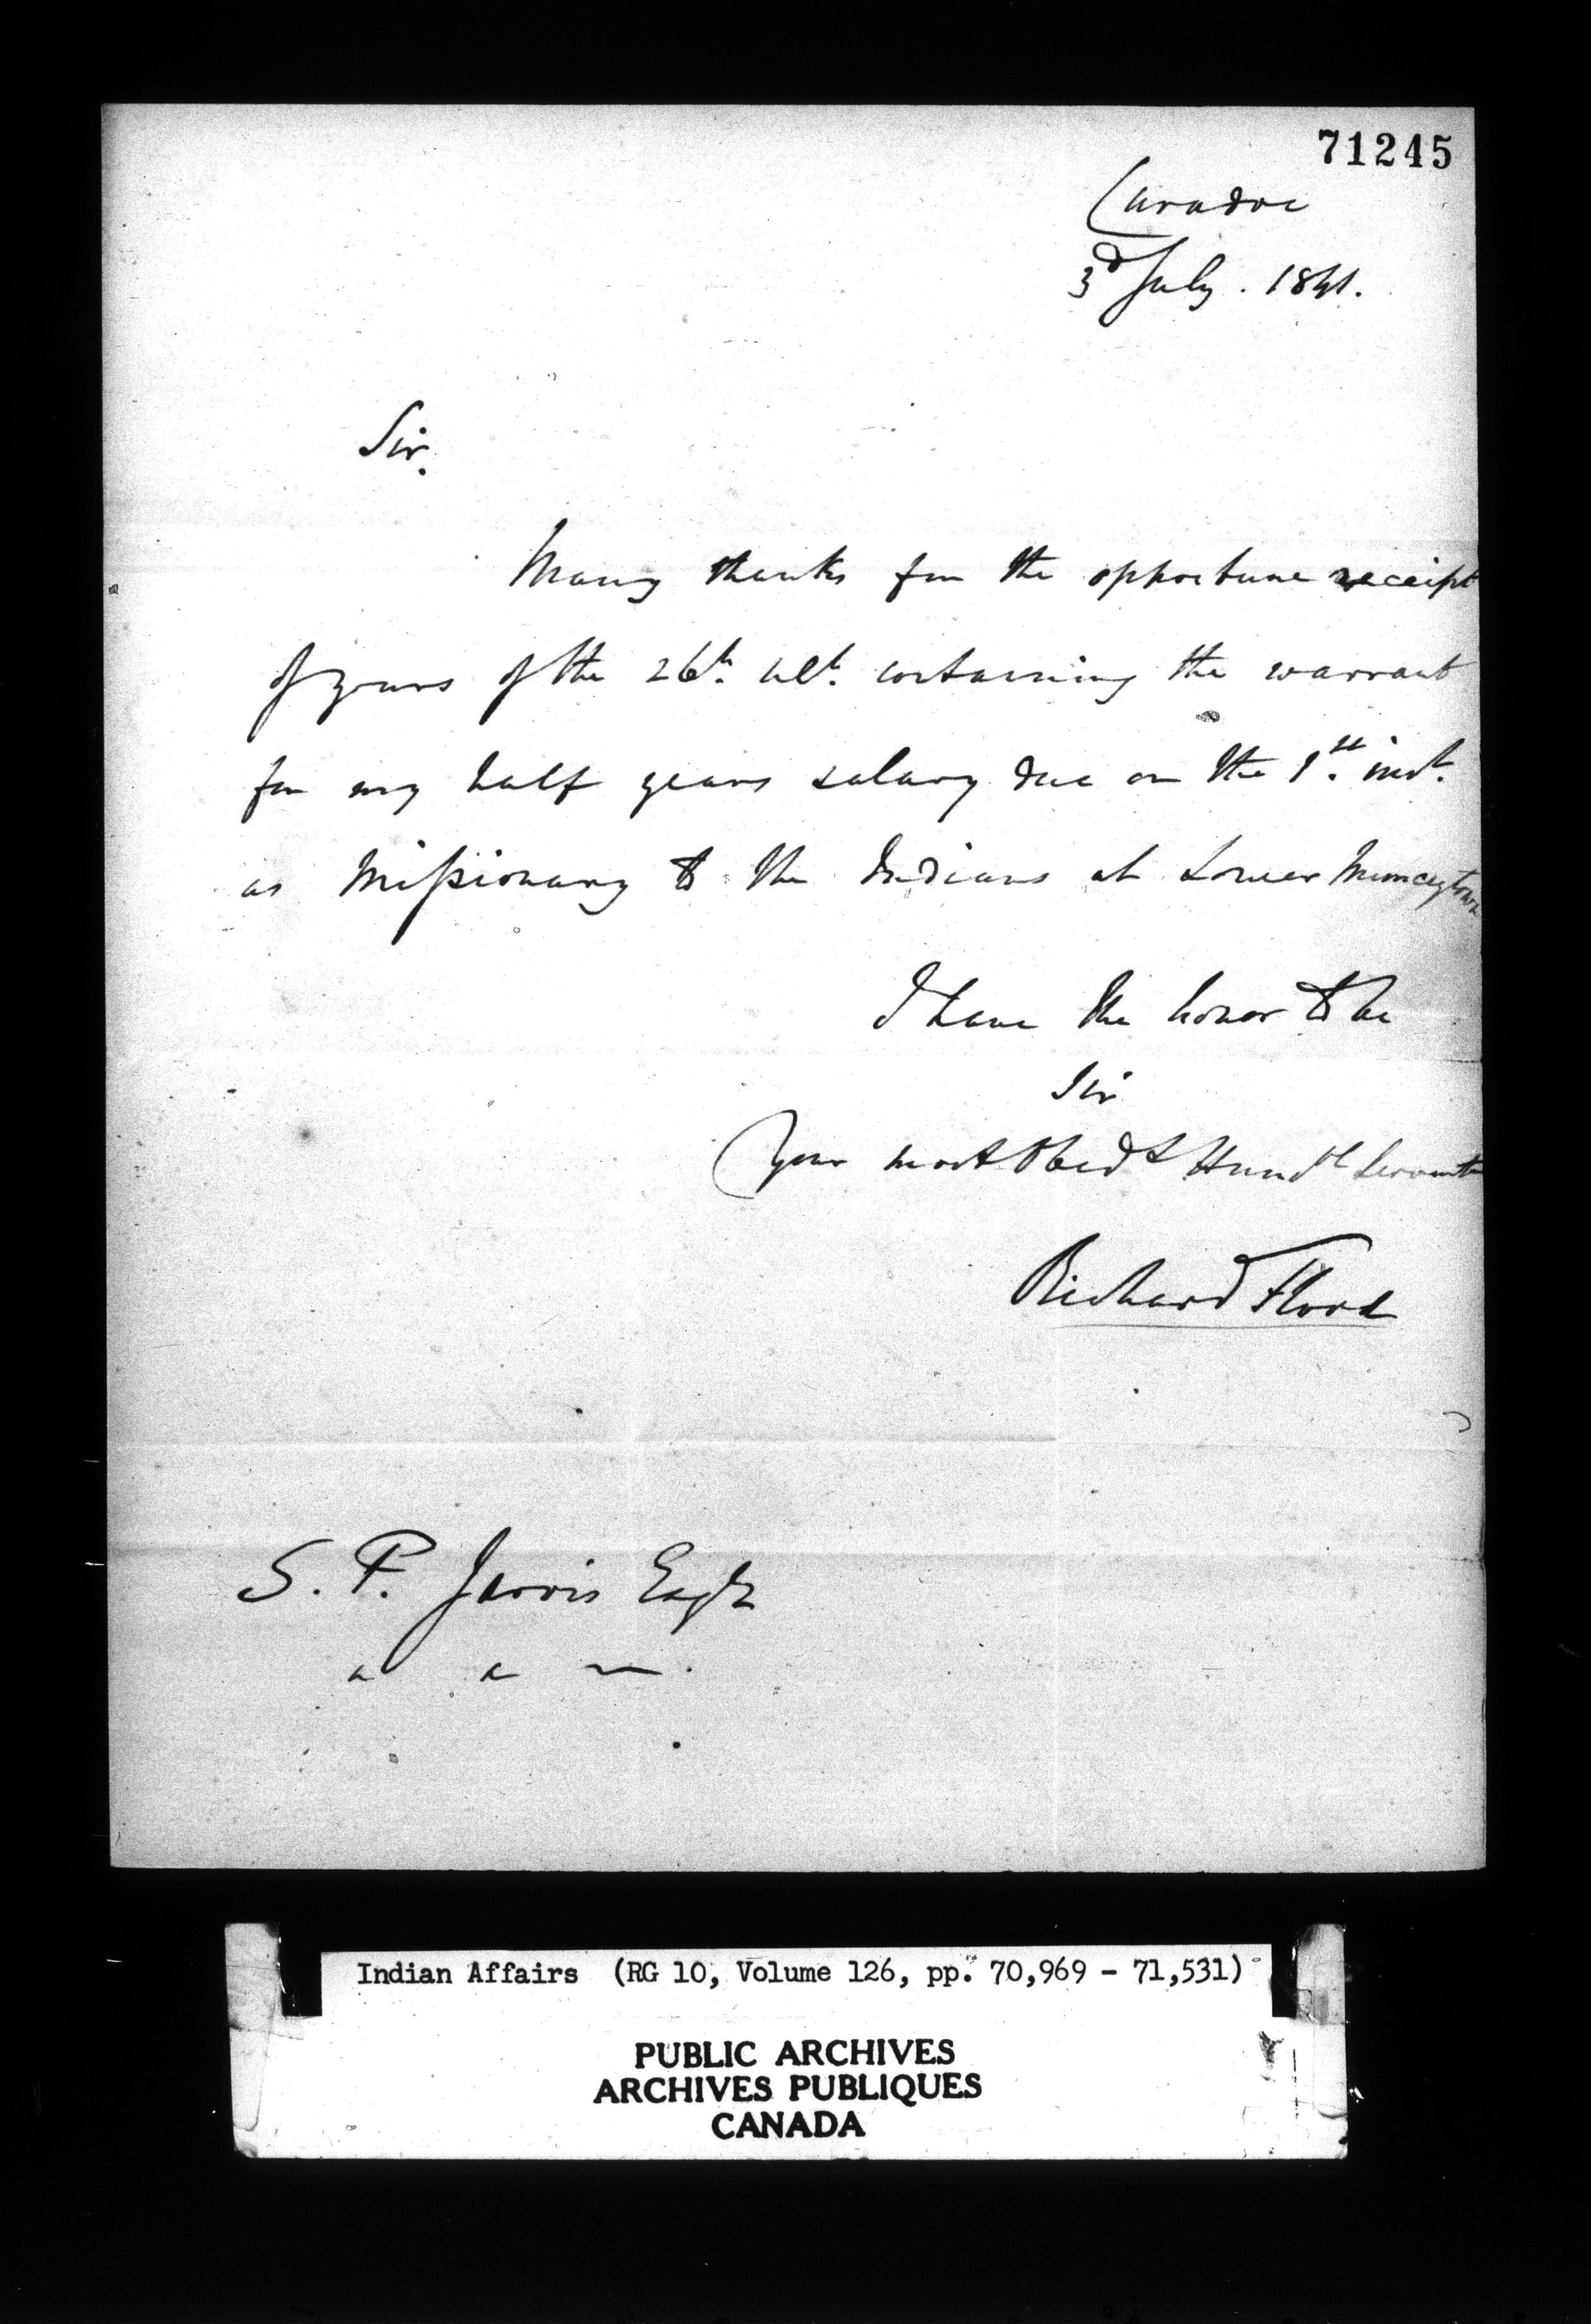 71245
Caradoc
3d July. 1841.
Sir.
Many thanks for the opportune receipt
of yours of the 26th. ult. containing the warrant
for my half years salary due on the 1st. inst.
as Missionary to the Indians at Lower Munceytown
I have the honor to be
Sir
Your most Obedt Humble Servant
Richard Flood
S. P. Jarvis Esqr
Indian Affairs (RG 10, Volume 126, pp. 70,969 - 71,531)
PUBLIC ARCHIVES
ARCHIVES PUBLIQUES
CANADA